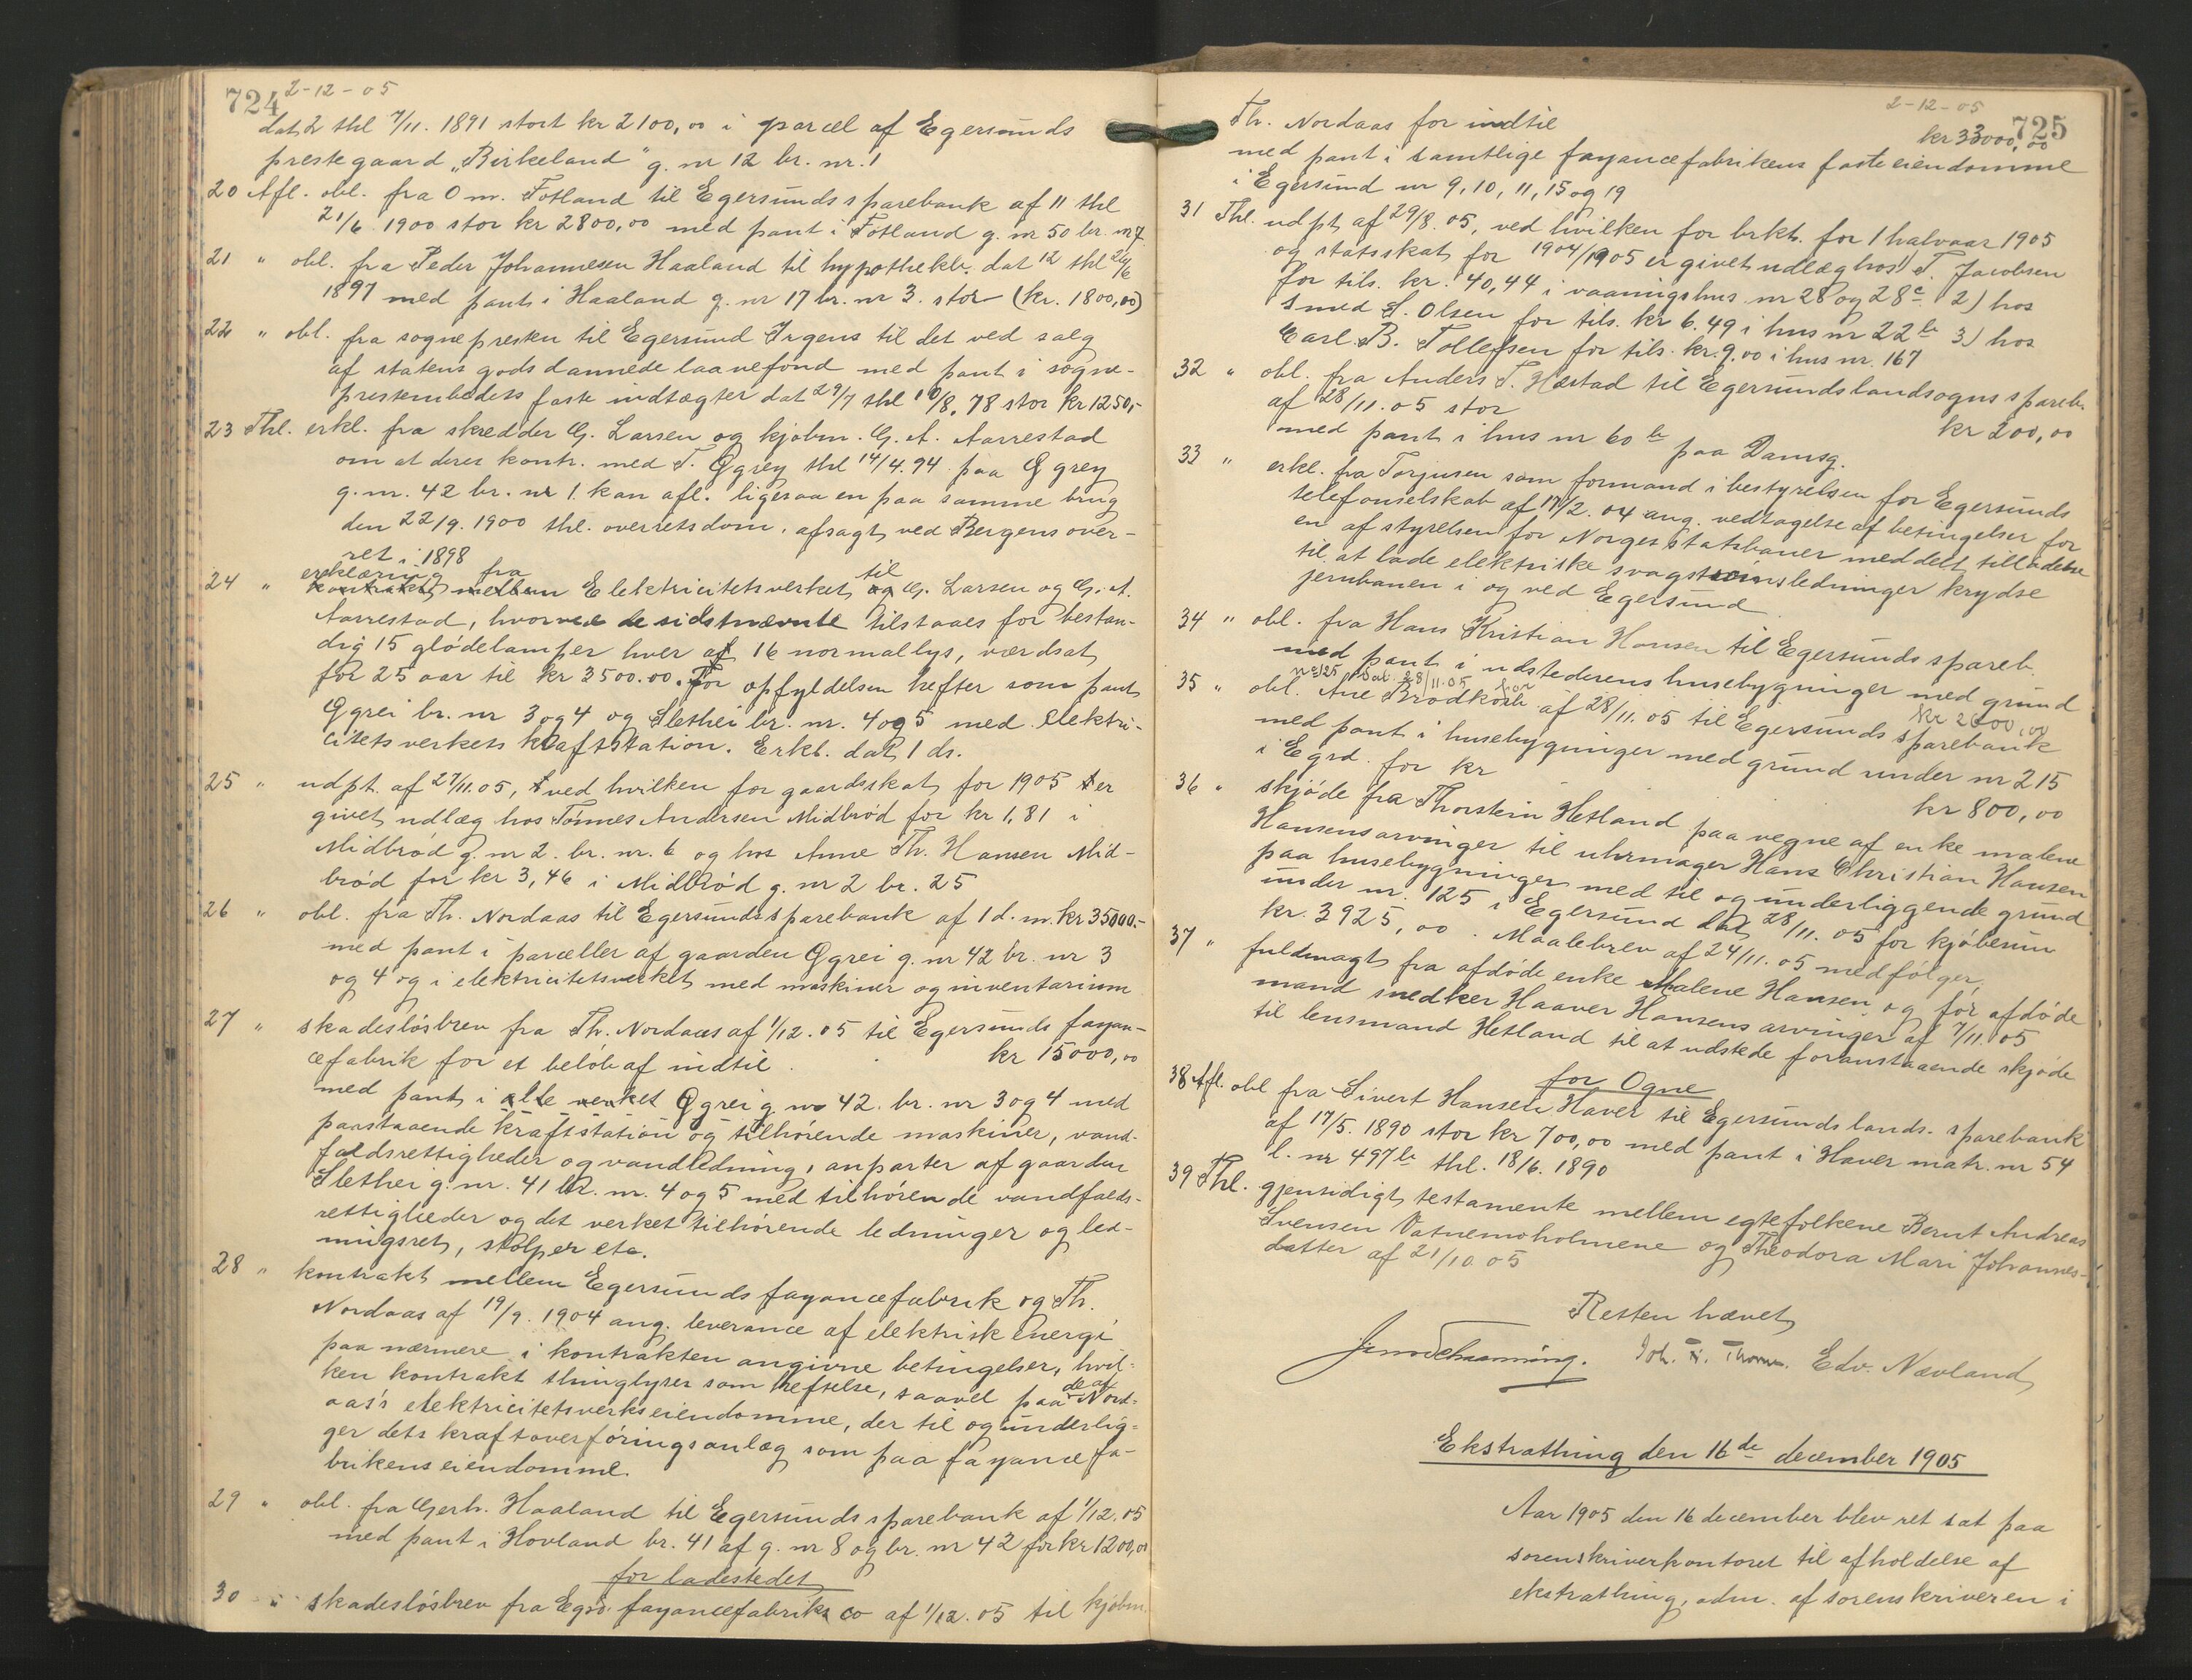 724
2-12-05
dat 2 thl 7/11. 1891 stort kr 2100,00 i parcel af Egersunds
prestegaard „Birkeland" g. nr 12 br. nr. 1
20 Afl. obl. fra O m. Fotland til Egersunds sparebank af 11 thl
21/6 1900 stor kr 2800,00 med pant i Fotland g. nr 50 br. nr 7
21 " obl. fra Peder Johannesen Haaland til hypothekb. dat 12 thl 26/6
1897 med pant i Haaland g. nr 17 br. nr 3. stor (kr. 1800,00)
22 " obl. fra sognepresten til Egersund Irgens til det ved salg
af statens gods dannede laanefond med pant i sogne-
prestembedets faste indtægter dat 29/7 thl 10/8. 78 stor kr 1250,-
23 Thl. erkl. fra skredder G. Larsen og kjøbm. G. A. Aarrestad
om at deres kontr. med T. Øgrey thl 14/4. 94 paa Øgrey
g. nr. 42 br. nr 1. kan afl. ligesaa en paa samme brug
den 22/9. 1900 thl. overretsdom, afsagt ved Bergens over-
ret i 1898
erklæring fra til
24 " kontrakt mellem Elektricitetsverket og G. Larsen og G. A.
Aarrestad, hvorved de sidstnævnte tilstaaes for bestan-
dig 15 glødelamper hver af 16 normallys, værdsat
for 25 aar til kr 3500.00. For opfyldelsen hefter som pant
Øgrei br. nr 3 og 4 og Slethei br. nr. 4 og 5 med elektri-
citetsverkets kraftstation. Erkl. dat 1 ds.
25 " udpt. af 27/11. 05, ved hvilken for gaardsskat for 1905 er
givet udlæg hos Tønnes Andersen Midbrød for kr 1,81 i
Midbrød g. nr 2. br. nr. 6 og hos Anne Th. Hansen Mid-
brød for kr 3,46 i Midbrød g. nr 2 br. 25
26 " obl. fra Th. Nordaas til Egersunds sparebank af 1 d. m. kr 35000.-
med pant i parceller af gaarden Øgrei g. nr 42 br. nr 3
og 4 og i elektricitetsverket med maskiner og inventarium
27 " skadesløsbrev fra Th. Nordaas af 1/12. 05 til Egersunds fayan-
cefabrik for et beløb af indtil kr 15000,00
med pant i alle verket Øgrei g nr 42. br. nr 3 og 4 med
paastaaende kraftstation og tilhørende maskiner, vand-
faldsrettigheder og vandledning, anparter af gaarden
Slethei g. nr. 41 br. nr. 4 og 5 med tilhørende vandfalds-
rettigheder og det verket tilhørende ledninger og led-
ningsret, stolper etc.
28 " kontrakt mellem Egersunds fayancefabrik og Th.
Nordaas af 19/9. 1904 ang. leverance af elektrisk energi
paa nærmere i kontrakten angivne betingelser, hvil-
ken kontrakt thinglyses som heftelse, saavel paa de af Nord-
aas's elektricitetsverks eiendomme, der til og underlig-
ger dets kraftoverføringsanlæg som paa fayancefa-
brikens eiendomme.
29 " obl. fra Gerh. Haaland til Egersunds sparebank af 1/12. 05
med pant i Hovland br. 41 af g. nr 8 og br. nr 42 for kr 1200,00
for ladestedet
30 " skadesløsbrev fra Egsd. fayancefabriks co af 1/12. 05 til kjøbm.
2-12-05
725
Th. Nordaas for indtil kr 33000,00
med pant i samtlige fayancefabrikens faste eiendomme
i Egersund nr 9, 10, 11, 15 og 19
31 Thl. udpt af 29/8. 05, ved hvilken for brkt. for 1 halvaar 1905
og statsskat for 1904/1905 er givet udlæg hos 1) T. Jacobsen
for tils. kr. 40,44 i vaaningshus nr 28 og 28c 2) hos
smed S. Olsen for tils. kr 6.49 i hus nr 22b 3) hos
Carl B. Tollefsen for tils. kr. 9.00 i hus nr. 167
32 " obl. fra Anders T. Hæstad til Egersunds landsogns spareb.
af 28/11. 05 stor kr 200,00
med pant i hus nr 60b paa Damsg.
33 " erkl. fra Torjusen som formand i bestyrelsen for Egersunds
telefonselskab af 17/2. 04 ang. vedtagelse af betingelser for
en af styrelsen for Norges statsbaner meddelt tilladelse
til at lade elektriske svagstrømsledninger krydse
jernbanen i og ved Egersund
34 " obl. fra Hans Kristian Hansen til Egersunds spareb.
med pant i udstederens husebygninger med grund
no 125 dat. 28/11. 05 for kr 2600,00
35 " obl. Ane Brodkorb af 28/11. 05 til Egersunds sparebank
med pant i husebygninger med grund under nr 215
i Egrd. for kr kr 800,00
36 " skjøde fra Thorstein Hetland paa vegne af enke malene
Hansens arvinger til uhrmager Hans Christian Hansen
paa husebygninger med til og underliggende grund
under nr. 125 i Egersund dat 28/11. 05 for kjøbesum
kr. 3925,00. Maalebrev af 24/11. 05 medfølger,
37 " fuldmagt fra afdøde enke Malene Hansen og før afdøde
mand snedker Haaver Hansens arvinger af 7/11. 05
til lensmand Hetland til at udstede foranstaaende skjøde
for Ogne
38 Afl. obl fra Sivert Hansen Haver til Egersunds lands. sparebank
af 17/5. 1890 stor kr 700,00 med pant i Haver matr. nr 54
l. nr 497b thl. 18/6. 1890
39 Thl. gjensidigt testamente mellem egtefolkene Bernt Andreas
Svensen Vatnemoholmene og Theodora Mari Johannes-
datter af 21/10 05
Retten hævet
Jens Schanning. Joh. Thom. Edv. Nævland
Ekstrathing den 16de december 1905
Aar 1905 den 16 december blev ret sat paa
sorenskriverkontoret til afholdelse af
ekstrathing, adm. af sorenskriveren i